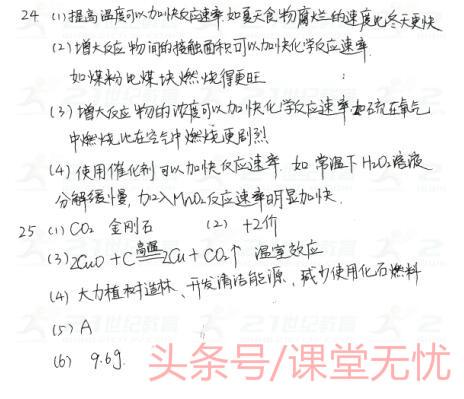 24 (1)提高温度可以加快反应速率 如夏天食物腐烂的速度比冬天更快
(2)增大反应物间的接触面积可以加快化学反应速率.
如煤粉比煤块燃烧得更旺
(3)增大反应物的浓度可以加快化学反应速率 如硫在氧气
中燃烧比在空气中燃烧更剧烈
(4) 使用催化剂可以加快反应速率. 如 常温下H2O2溶液
分解缓慢, 加入MnO2反应速率明显加快.
25 (1) CO2 金刚石 (2) +2价
(3) 2CuO + C 高温 2Cu + CO2↑ 温室效应
(4) 大力植树造林、开发清洁能源、减少使用化石燃料
(5) A
(6) 9.6g.
21世纪教育
头条号/课堂无忧